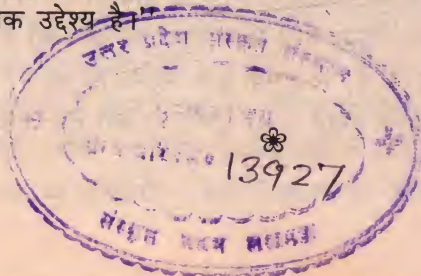 क उद्देश्य है।"
उत्तर प्रदेश संस्कृत संस्थान
13927
संस्कृत भवन लखनऊ